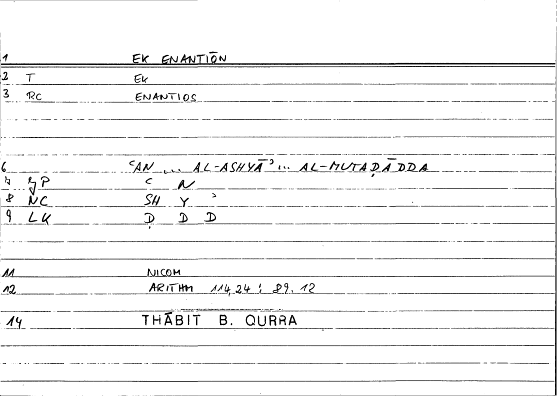 1 EK ENANTIŌN
2 T EK
3 RC ENANTIOS
6 ʿAN ... AL-ASHYĀʾ ... AL-MUTAḌĀDDA
7 JP ʿ N
8 NC SH Y ʾ
9 LK Ḍ D D
11 NICOM
12 ARITHM 114,24 : 89.12
14 THĀBIT B. QURRA